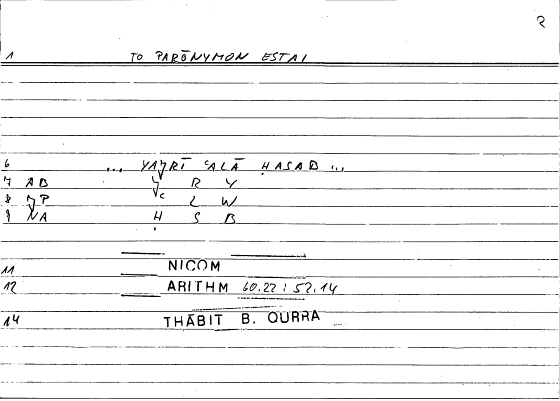 2
1 TO PARŌNYMON ESTAI
6 ... YAJRĪ ʿALĀ ḤASAB ...
7 AB J R Y
8 JP ʿ L W
9 NA Ḥ S B
11 NICOM
12 ARITHM 60.22 : 52.14
14 THĀBIT B. QURRA